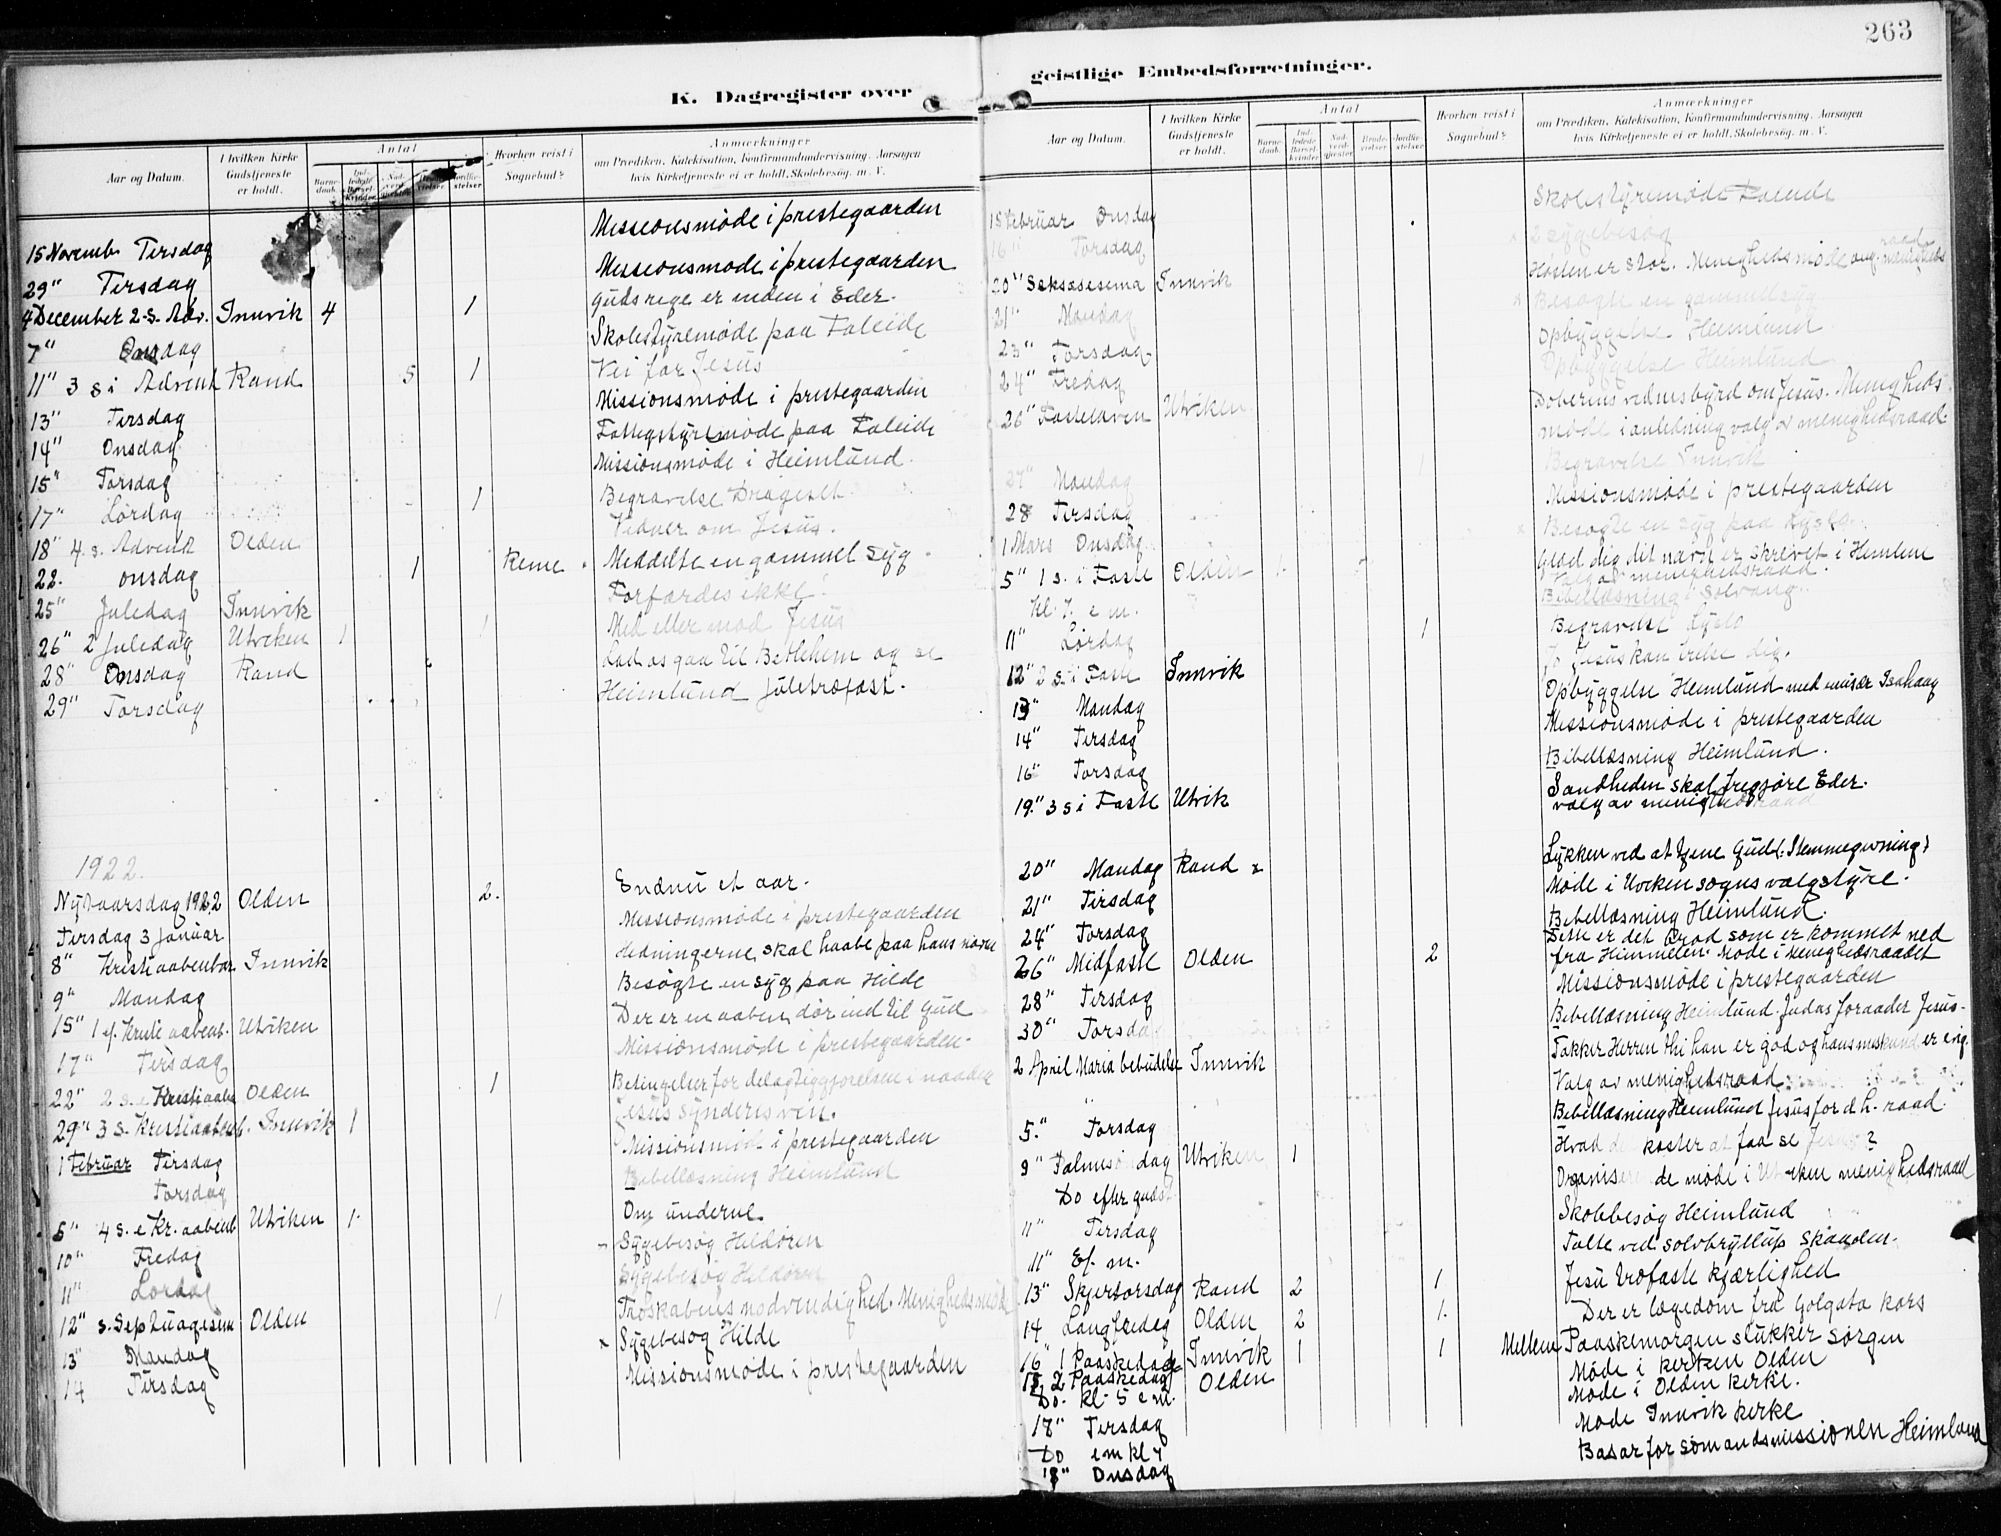 263
K. Dagregister over
geistlige Embedsforretninger.
Aar og Datum.
I hvilken Kirke Gudstjeneste er holdt.
Antal
Hvorhen reist i Sognebud?
Anmærkninger
om Prædiken, Katekisation, Konfirmandundervisning, Aarsagen
hvis Kirketjeneste ei er holdt, Skolebesög, m. V.
15 Novemb. Tirsdag Missionsmøde i prestegaarden
29" Tirsdag Missionsmøde i prestegaarden
4 December 2. S. Adv. Innvik 4 1 Guds rige er inden i Eder.
7" Onsdag Skolestyremøde paa Faleide
11" 3 s i Advent Rand 5 1 Vei for Jesus
13" Tirsdag Missionsmøde i prestegaarden
14" Onsdag Fattigstyremøde paa Faleide
15" Torsdag Missionsmøde i Heimlund.
17" Lørdag 1 Begravelse
18" 4. s. Advent Olden Vidner om Jesus.
22. onsdag 1 Meddelte en gammel syg
25" Juledag Innvik Forfærdes ikke!
26" 2 Juledag Utviken 1 1 Med eller mod Jesus
28" Onsdag Rand Lad os gaa til Betlehem og se
29" Torsdag Heimlund juletræfest.
1922.
Nytaarsdag 1922 Olden 2. Endnu et aar.
Tirsdag 3 Januar Missionsmøde i prestegaarden
8" Kristi aabenbar Innvik Hedningerne skal haabe paa hans navn
9" Mandag Besøgte en syg paa Hilde
15" 1 ef. Kristi aabenb. Utviken Der er en aaben dør ind til Gud
17" Tirsdag Missionsmøde i prestegaarden.
22" 2 s. e Kristi aabe Olden 1 Betingelser for delagtiggjørelsen i naaden
29" 3 s. Kristi aabenb. Innvik 1 Jesus synderes ven.
1 Februar Tirsdag Missionsmøde i prestegaarden
Torsdag Bibellæsning Heimlund
5" 4 s. e Kr. aabenb Utviken 1 Om underne
10" Fredag Sygebesøg Hildøren
11" Lørdag Sygebesøg Hildøren
12" s. Septuagesima Olden 1 Troskabens nødvendighed. Menighedsmøde
13" Mandag Sygebesøg Hilde
14 Tirsdag Missionsmøde i prestegaarden
Aar og Datum.
I hvilken Kirke Gudstjeneste er holdt.
Antal
Hvorhen reist i Sognebud?
Anmærkninger
om Prædiken, Katekisation, Konfirmandundervisning, Aarsagen
hvis Kirketjeneste ei er holdt, Skolebesög, m. V.
15 Februar Onsdag Skolestyremøde Faleide
16" Torsdag 2 sygebesøg
20" Seksagesima Innvik Høsten er stor. Menighedsmøde ang. menigheds raad
21" Mandag Besøgte en gammel syg
23" Torsdag Opbyggelse Heimlund
24" Fredag Opbyggelse Heimlund
26" Fastelaven Utviken Døberens vidnesbyrd om Jesus. Menigheds-
møde i anledning valg av menighedsraad.
27" Mandag Begravelse Innvik
28 Tirsdag Missionsmøde i prestegaarden
1 Mars Onsdag Besøgte en syg paa
5" 1 s. i Faste Olden Glæd dig dit navn er skrevet i Himlen
Valg av menighedsraad.
Kl. 7. e m. Bibellæsning i Solvang.
11" Lørdag 1 Begravelse
12" 2 s. i Faste Innvik Jo Jesus kan frelse dig.
13" Mandag Opbyggelse Heimlund med
14" Tirsdag Missionsmøde i prestegaarden
16" Torsdag Bibellæsning Heimlund.
19." 3 s i Faste Utvik Sandheden skal frigjøre Eder.
valg av menighedsraad
20" Mandag Rand Lykken ved at tjene Gud (: Stemmegivning:)
21" Tirsdag Møde i Utviken sogns valgstyre.
24" Torsdag Bibellæsning Heimlund.
26" Midfaste Olden 2 Dette er det brød som er kommet ned
fra Himmelen. Møde i Menighedsraadet
28" Tirsdag Missionsmøde i prestegaarden
30" Torsdag Bibellæsning Heimlund. Judas foraader Jesus.
2 April Maria bebudelse Innvik Takker Herren thi han er god og hans miskund er evig.
Valg av menighedsraad
5." Torsdag Bibellæsning Heimlund Jesus for d. h. raad.
9" Palmesøndag Utviken 1 Hvad koster at faa se Jesus?
Do efter gudst Organiserende møde i Utviken menighedsraad
11" Tirsdag Skolebesøg Heimlund
11" Ef. m. Talte ved sølvbryllup
13" Skjertorsdag Rand 2 1. Jesu trofaste kjærlighed
14 Langfredag Olden 2 1. Der er lægedom fra Golgata kors
16" 1 Paaskedag Innvik 1 1 Paaskemorgen slukker sorgen
2 Paaskedag Olden Møde i kirken Olden
Do. kl. 5 e m. Møde i Olden kirke.
18" Tirsdag Møde Innvik kirke
Do e m kl 4 Basar for sømandsmissionen Heimlund
18" Onsdag